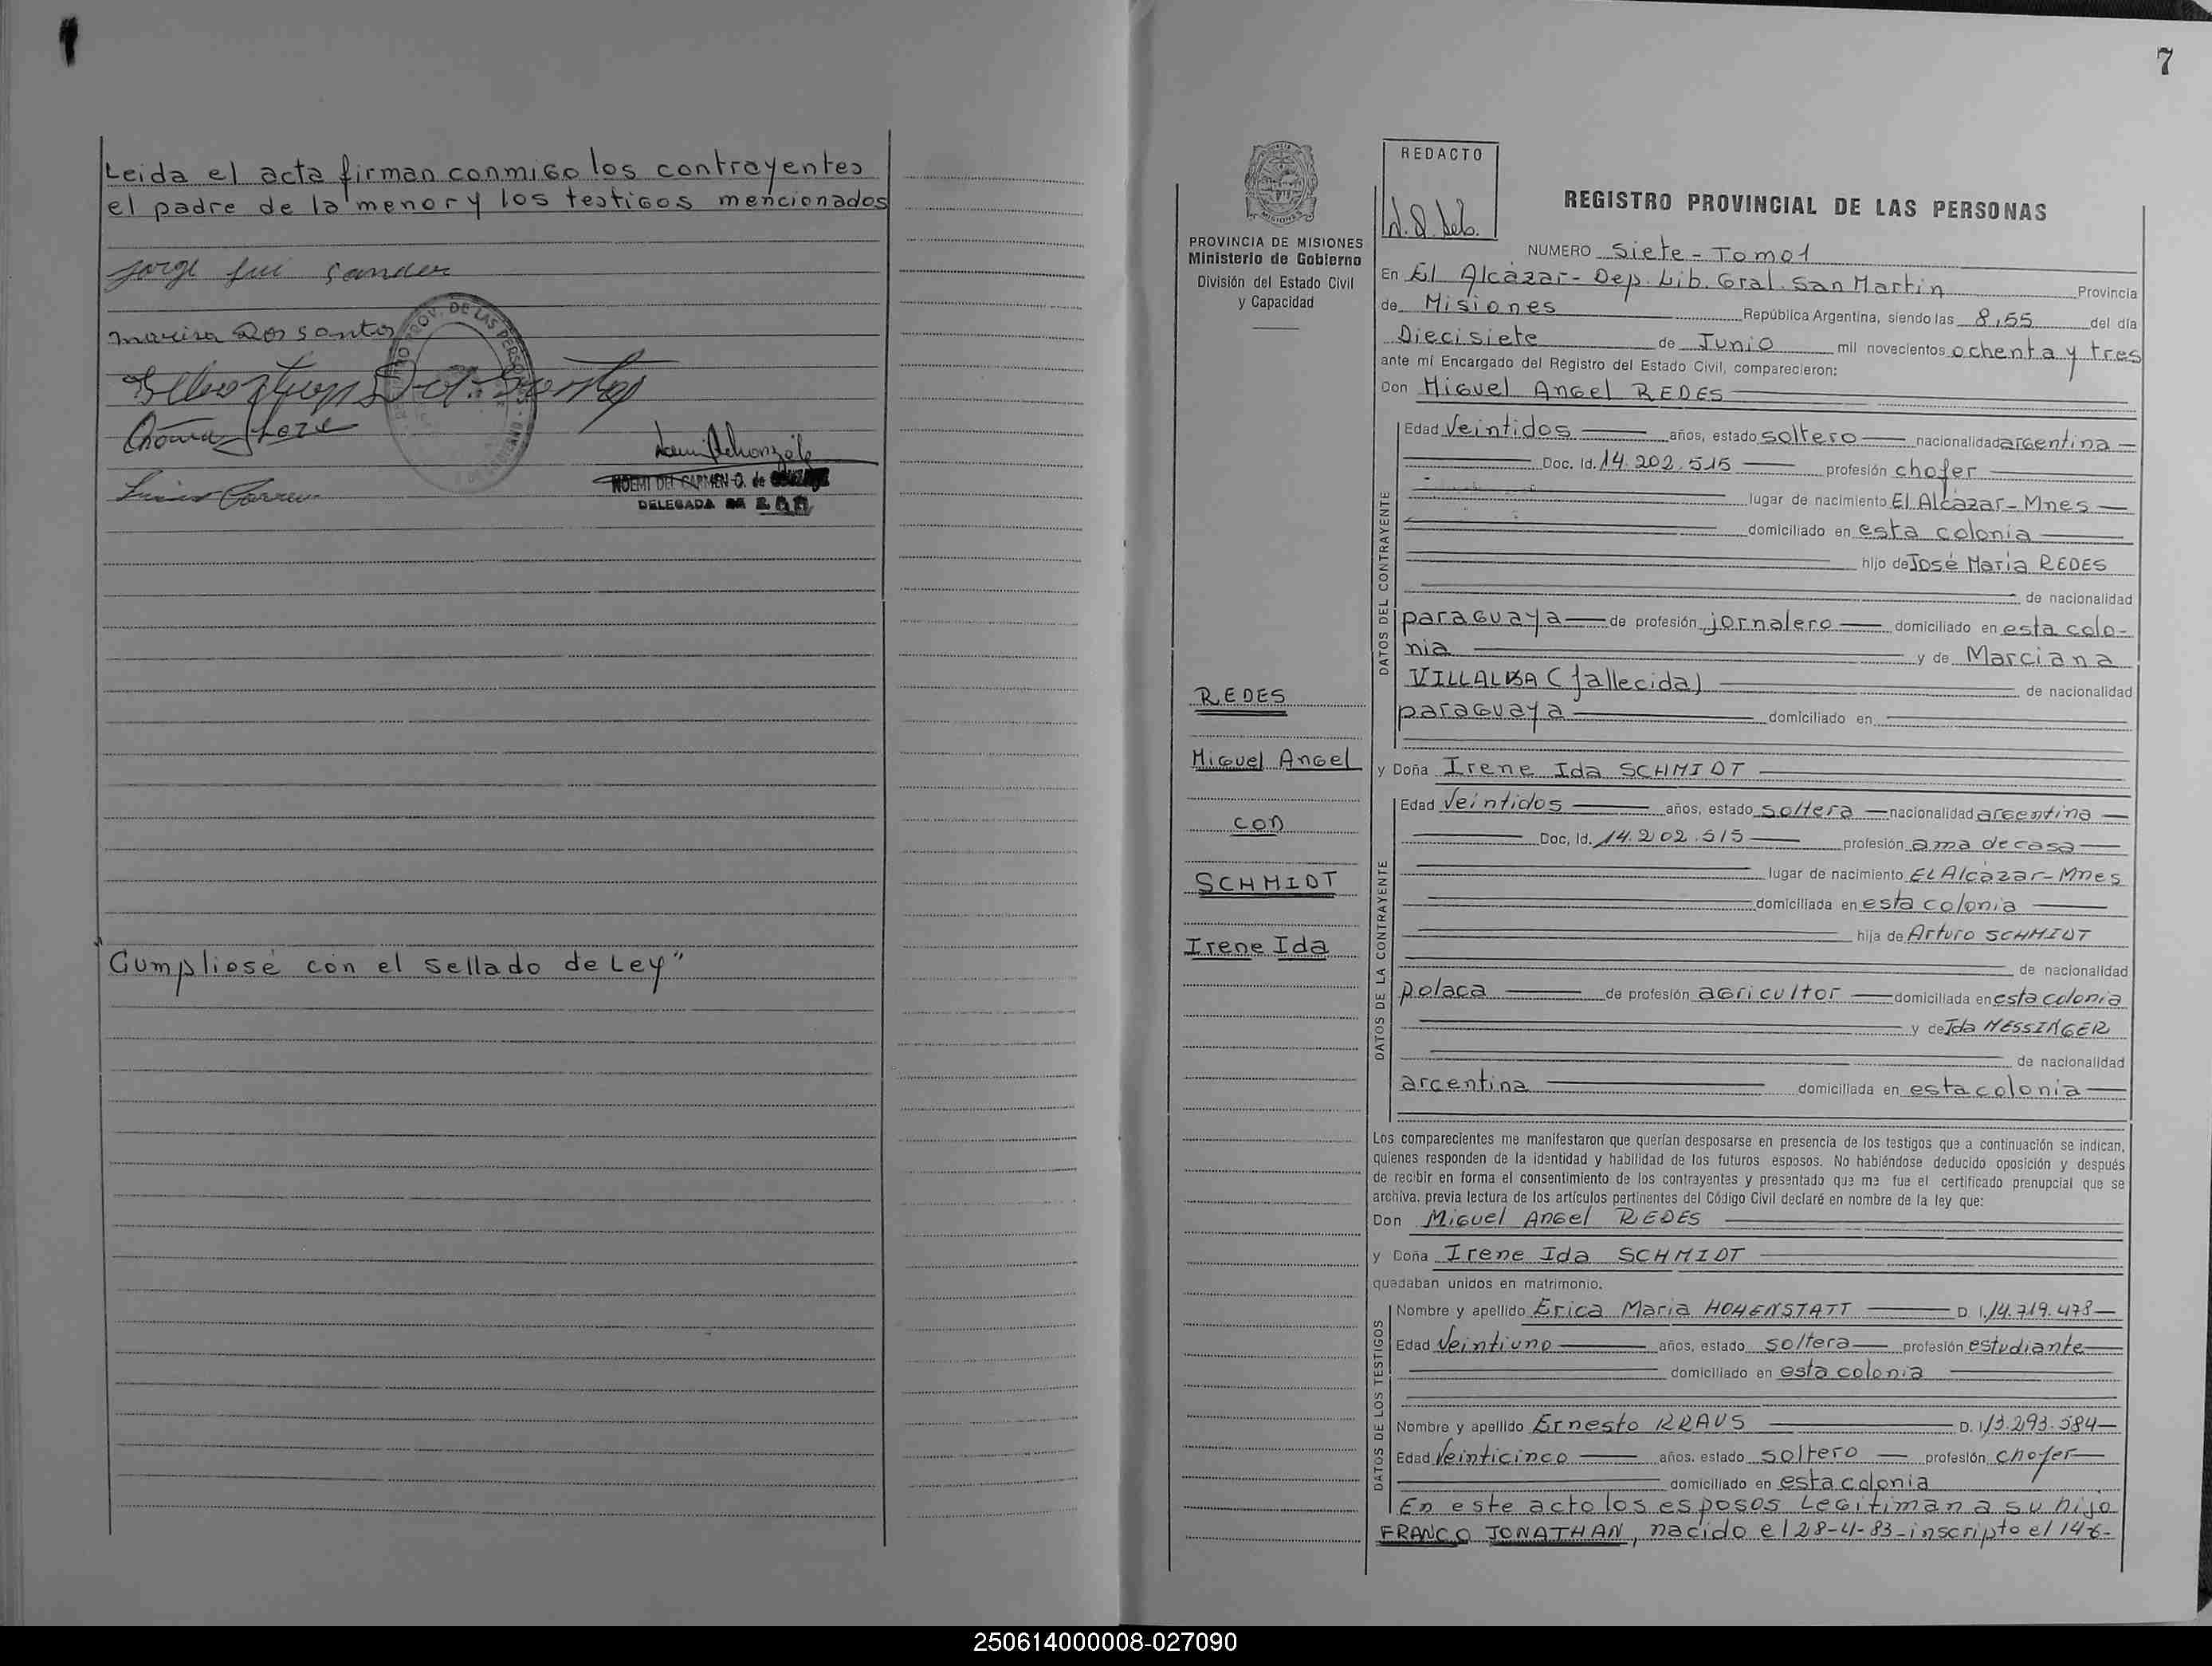 Leida el acta firman conmigo los contrayentes
el padre de la menor y los testigos mencionados
marisa Dos santos
NOEMI DEL CARMEN O. de
DELEGADA
"Cumpliose con el sellado de Ley"
7
REDACTO
REGISTRO PROVINCIAL DE LAS PERSONAS
PROVINCIA DE MISIONES
Ministerio de Gobierno
División del Estado Civil
y Capacidad
NUMERO Siete - Tomo 1
En El Alcázar - Dep. Lib. Gral. San Martin Provincia
de Misiones República Argentina, siendo las 8,55 del día
Diecisiete de Junio mil novecientos ochenta y tres
ante mí Encargado del Registro del Estado Civil, comparecieron:
Don Miguel Angel REDES
Edad Veintidos años, estado soltero nacionalidad argentina
Doc. Id. 14.202.515 profesión chofer
lugar de nacimiento El Alcázar - Mnes
domiciliado en esta colonia
hijo de José Maria REDES
de nacionalidad
paraguaya de profesión jornalero domiciliado en esta colo-
nia y de Marciana
VILLALBA (fallecida) de nacionalidad
paraguaya domiciliado en
DATOS DEL CONTRAYENTE
REDES
Miguel Angel
con
SCHMIDT
Irene Ida
y Doña Irene Ida SCHMIDT
Edad Veintidos años, estado soltera nacionalidad argentina
Doc, Id. 14.202.515 profesión ama de casa
lugar de nacimiento El Alcázar - Mnes
domiciliada en esta colonia
hija de Arturo SCHMIDT
de nacionalidad
polaca de profesión agricultor domiciliada en esta colonia
y de Ida MESSINGER
de nacionalidad
argentina domiciliada en esta colonia
DATOS DE LA CONTRAYENTE
Los comparecientes me manifestaron que querían desposarse en presencia de los testigos que a continuación se indican,
quienes responden de la identidad y habilidad de los futuros esposos. No habiéndose deducido oposición y después
de recibir en forma el consentimiento de los contrayentes y presentado que me fue el certificado prenupcial que se
archiva, previa lectura de los artículos pertinentes del Código Civil declaré en nombre de la ley que:
Don Miguel Angel REDES
y Doña Irene Ida SCHMIDT
quedaban unidos en matrimonio.
Nombre y apellido Erica Maria HOHENSTATT D. I. 14.719.478
Edad Veintiuno años, estado soltera profesión estudiante
domiciliado en esta colonia
Nombre y apellido Ernesto KRAUS D. I. 13.293.584
Edad Veinticinco años, estado soltero profesión chofer
domiciliado en esta colonia
DATOS DE LOS TESTIGOS
En este acto los esposos Legitiman a su hijo
FRANCO JONATHAN, nacido el 28-4-83- inscripto el 14-6-
250614000008-027090